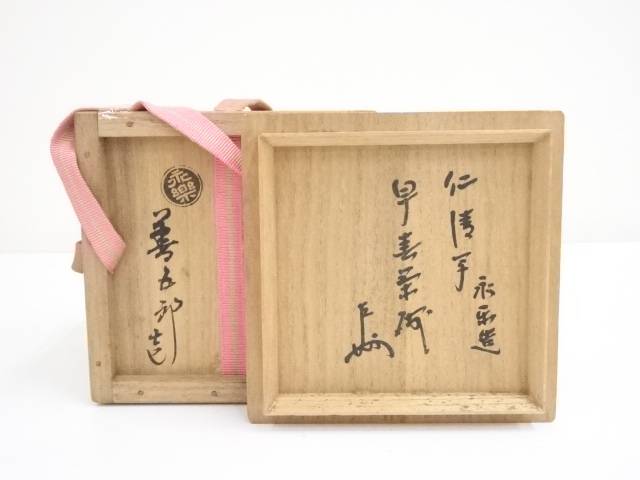 仁清写
永楽造
早春茶碗
永樂
善五郎造